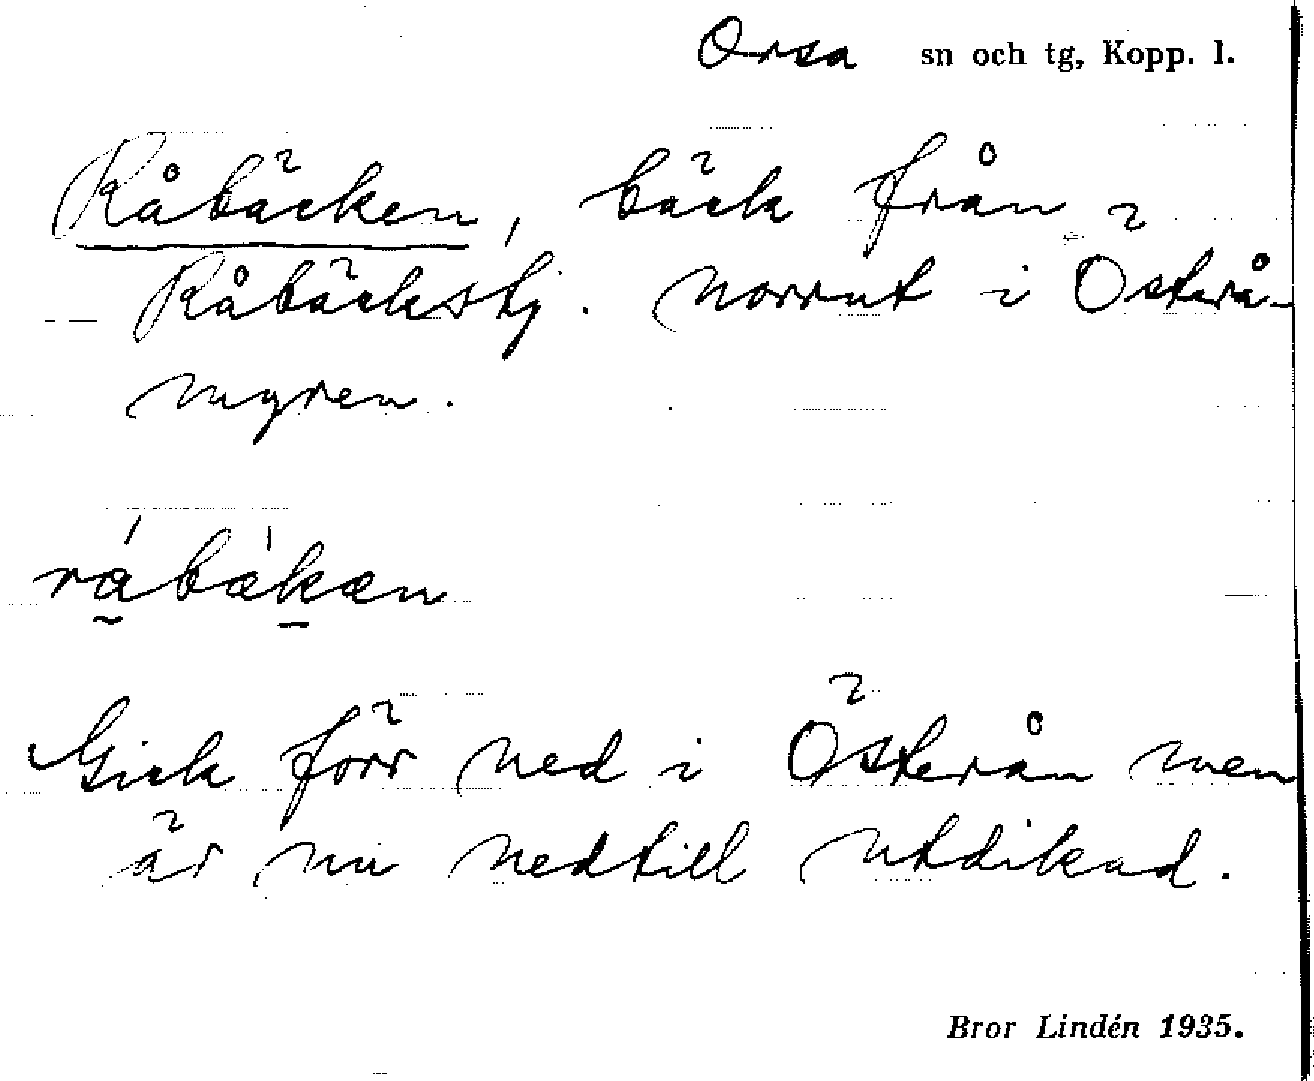 Orsa sn och tg, Kopp. l.
Råbäcken, bäck från
Råbäckstj. norrut i Österå-
myren.
rá̰bæ̀k̠æn
Gick förr ned i Österån men
är nu nedtill utdikad.
Bror Lindén 1935.